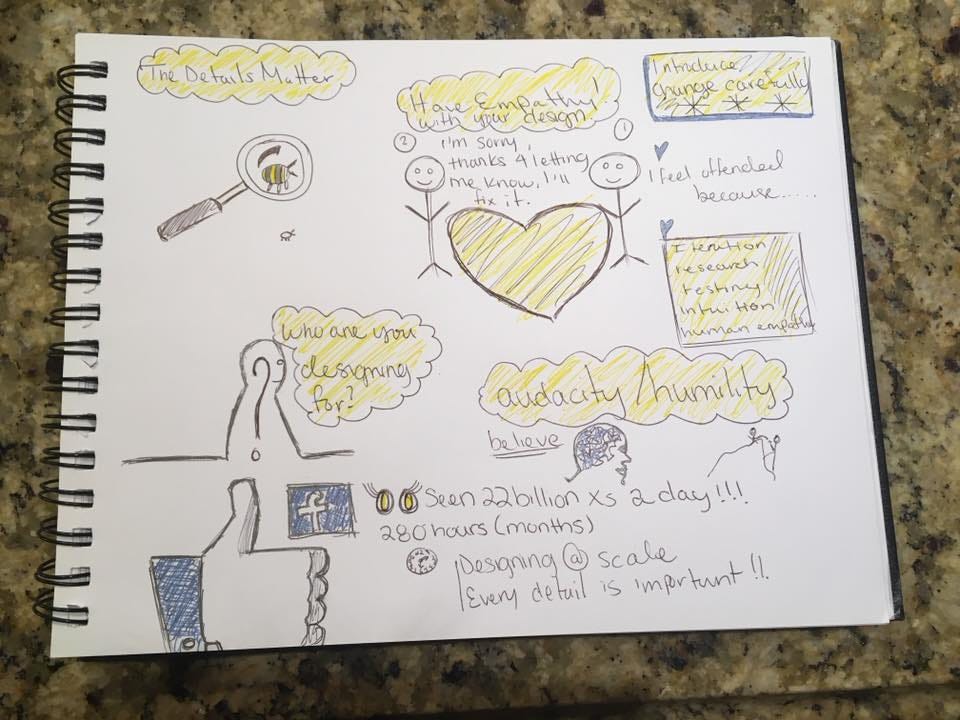 The Details Matter
Have Empathy!
with your design
Introduce
change carefully
2
1
i'm sorry,
thanks 4 letting
me know, I'll
fix it.
I feel offended
because.....
Iteration
research
testing
intuition
human empathy
Who are you
designing
for?
?
audacity/humility
believe
f
Seen 22 billion xs a day!!!
280 hours (months)
Designing @ scale
Every detail is important!!